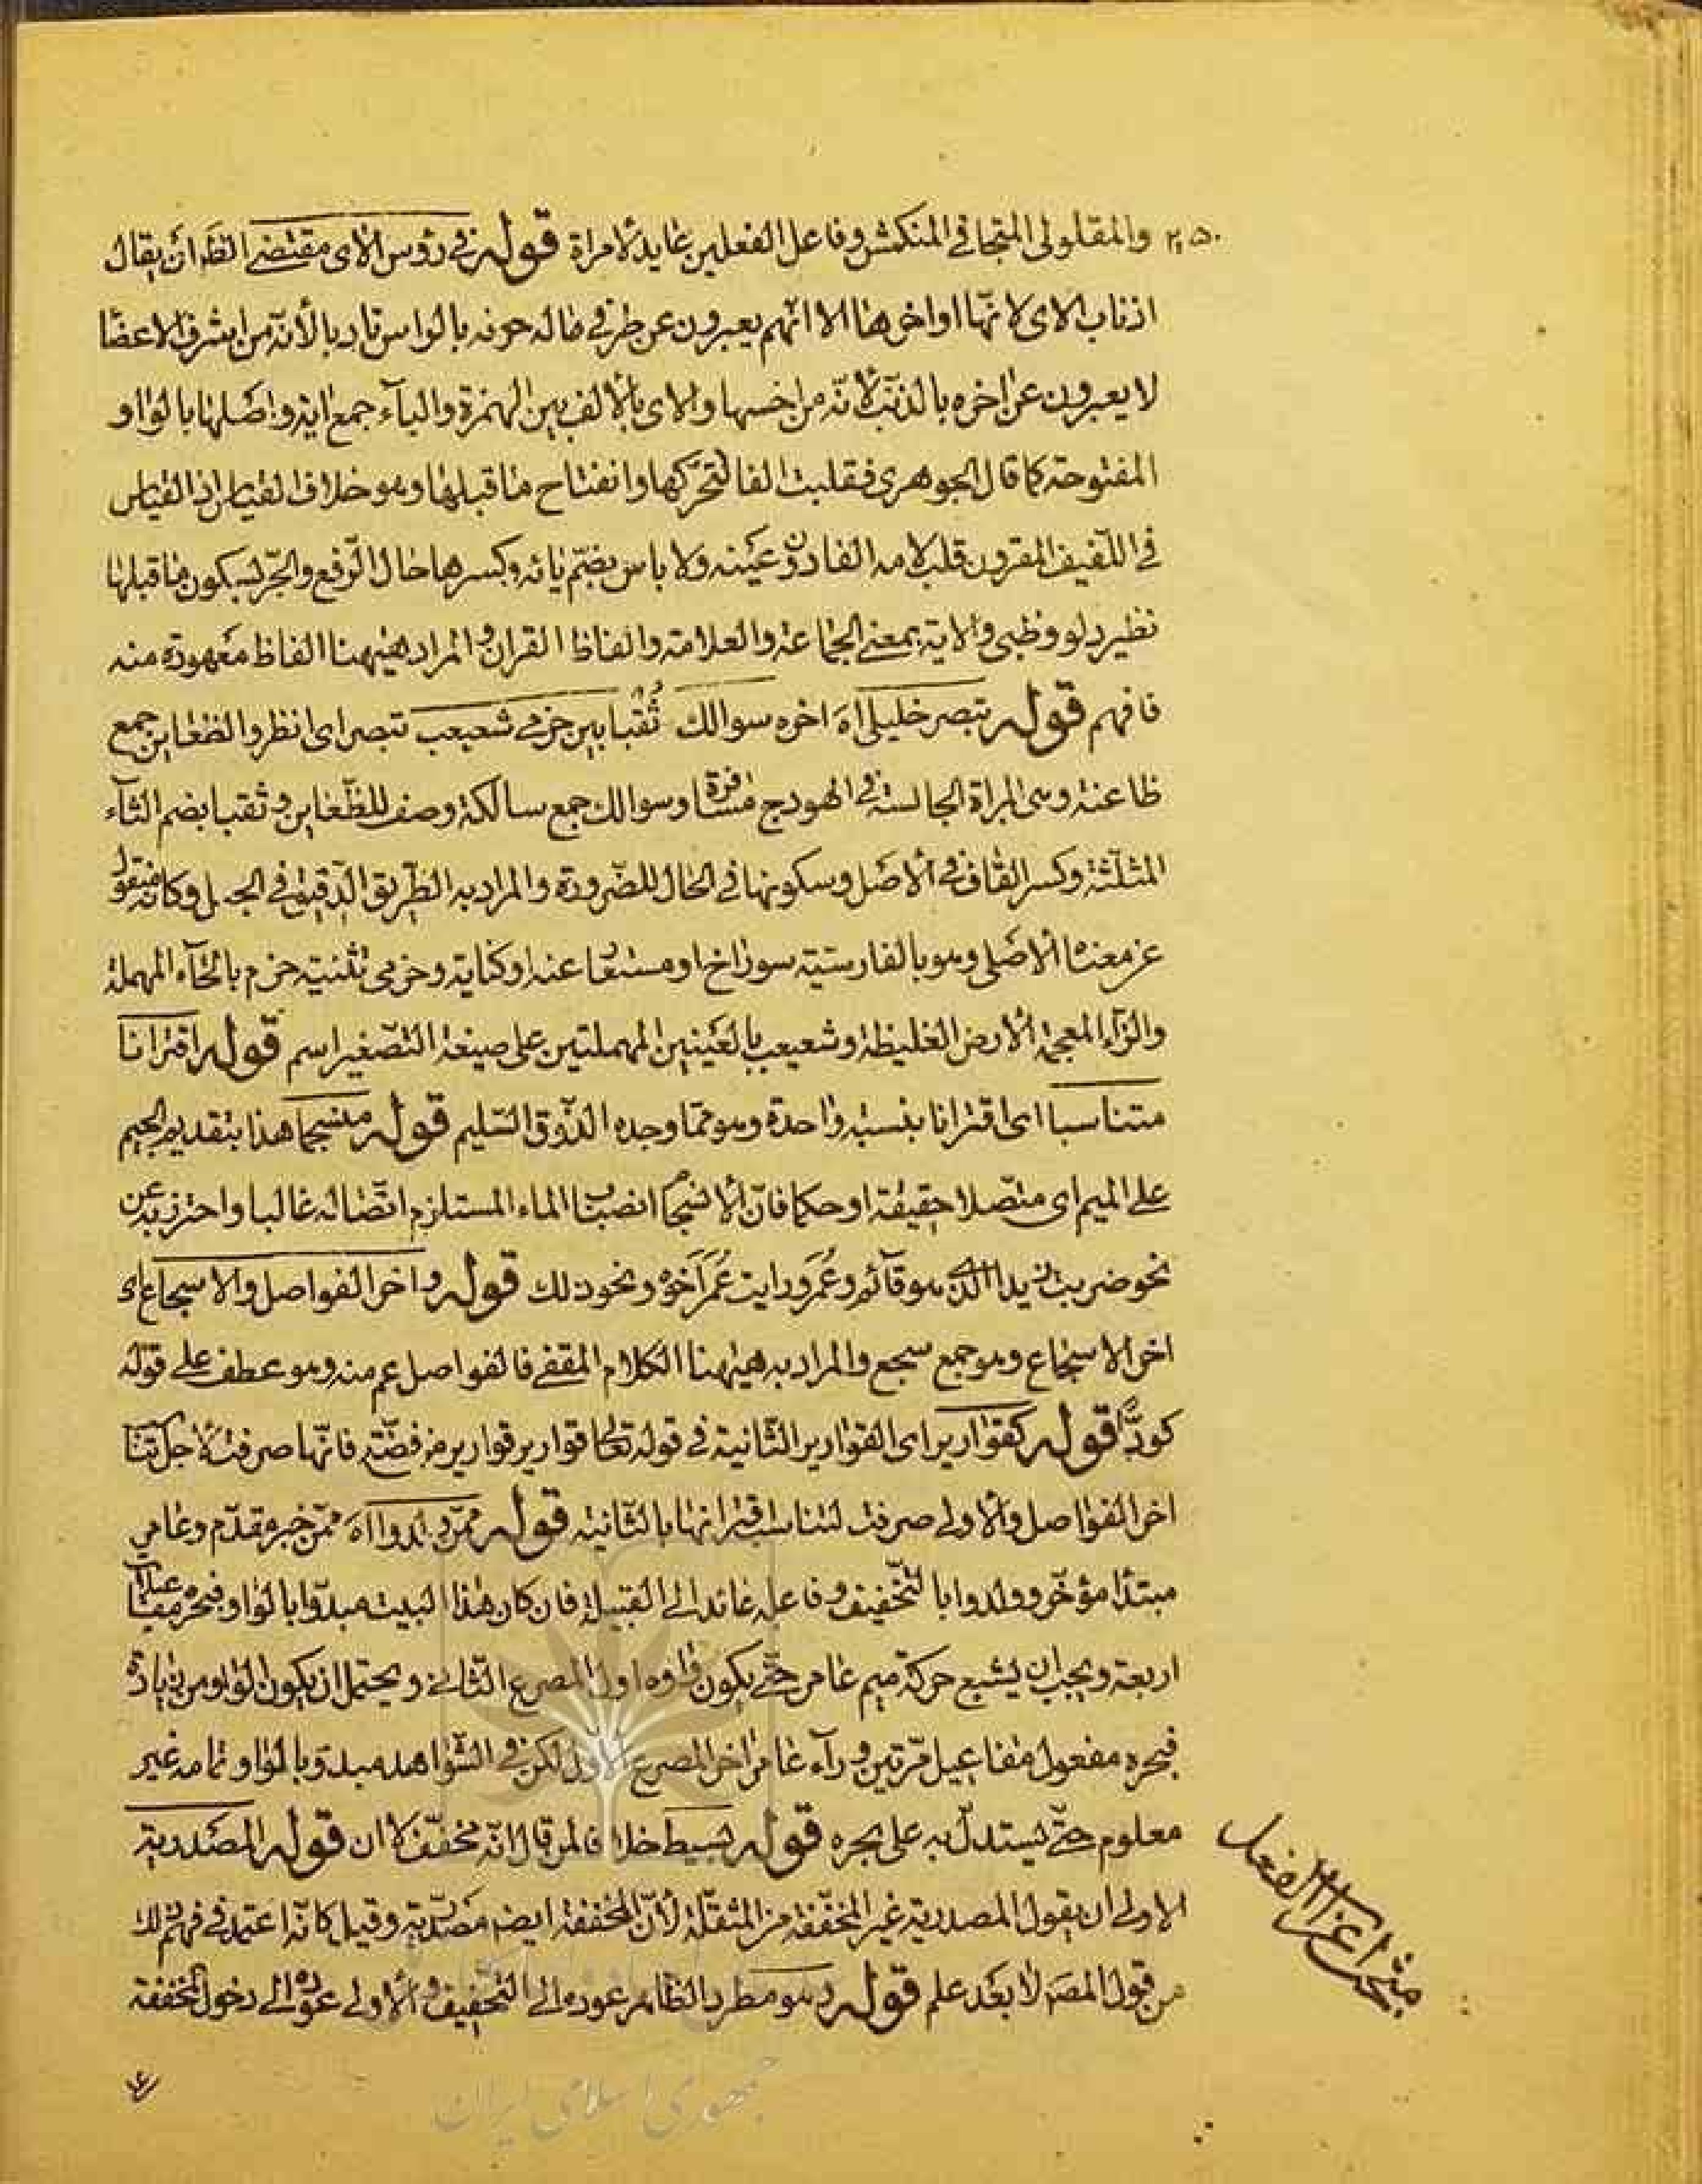 ۲۱۵۰ والمقلولی المتجافی المنکمش وفاعل الفعلین عاید لامراة قوله فی رؤس الای مقتضی الظ ان یقال
اذناب الای لانها اواخرها الا انهم یعبرون عن طرفی ماله حرفه بالراس تادبا لأنه من اشرف الاعضا
لا یعبرون عن اخره بالذنب لأنه من اخسها والای بالألف بین الهمزة والیآء جمع ایة واصلها بالواو
المفتوحة کما قال الجوهری فقلبت الفا لتحرکها وانفتاح ما قبلها وهو خلاف القیاس اذ القیاس
فی اللفیف المقرون قلب لامه الفا دون عینه ولا باس بضم یائه وکسرها حال الرفع والجر لسکون ما قبلها
نظیر دلو وظبی والایة بمعنی الجماعة والعلامة والفاظ القران والمراد هیهنا الفاظ معهودة منه
فافهم قوله تبصر خلیلی اه اخره سوالك ثُقبا بین حزمی شعیعب تبصر ای انظر والظعاین جمع
ظاعنة وهی المراة الجالسة فی الهودج مسافرة وسوالك جمع سالکة وصف للظعاین وثقبا بضم الثآء
المثلثة وکسر القاف فی الأصل وسکونها فی الحال للضرورة والمراد به الطریق الدقیق فی الجبل وکانه منقول
عن معناه الأصلی وهو بالفارسیة سوراخ او مستعار عنه او کنایة وحزمی تثنیة حزم بالحآء المهملة
والزآء المعجمة الأرض الغلیظة وشعیعب بالعینین المهملتین علی صیغة التصغیر اسم قوله اقترانا
متناسبا ای اقترانا بنسبة واحدة وهو مما وجده الذوق السلیم قوله منسجما هذا بتقدیم الجیم
علی المیم ای متصلا حقیقة او حکما فان الأنسجام انصباب الماء المستلزم اتصاله غالبا واحترز به عن
نحو ضربت زیدا الذی هو قآئم وعُمَر ورایت عُمَر اَخَوه ونحو ذلك قوله واخر الفواصل والاسجاع ای
اخر الاسجاع وهو جمع سجع والمراد به هیهنا الکلام المقفی فالفواصل اعم منه وهو عطف علی قوله
کودّا قوله کقواریر ای القواریر الثانیة فی قوله تعالی قواریر قواریر من فضة فانها صرفت لأجل تناسب
اخر الفواصل والأولی صرفت لتناسب اقترانها بالثانیة قوله ممن ولدوا اه ممن خبر مقدم وعامر
مبتدأ مؤخر وولدوا بالتخفیف وفاعله عائد الی القبیلة فان کان هذا البیت مبدوّا بالواو فبحره مفاعیلن
اربعة ویجب ان یشبع حرکة میم عامر حتی یکون راؤه اول المصرع الثانی ویحتمل ان یکون الواو من زیادة
فبحره مفعول مفاعیل مرتین ورآء عامر اخر المصرع الاول لکن فی الشواهد مبدوّ بالواو وتمامه غیر
معلوم حتی یستدل به علی بحره قوله بسیط خلافا لمن قال انه مخفف کان قوله المصدریة
الاولی ان یقول المصدریة غیر المخففة من المثقلة لأن المخففة ایضا مصدریة وقیل کانه اعتمد فی فهم ذلك
من قول المصه لا بعد علم قوله وهو مطرد الظاهر عوده الی التخفیف والأولی عوده الی دخول المخففة
مبحث اعراب الفعل
جمهوری اسلامی ایران